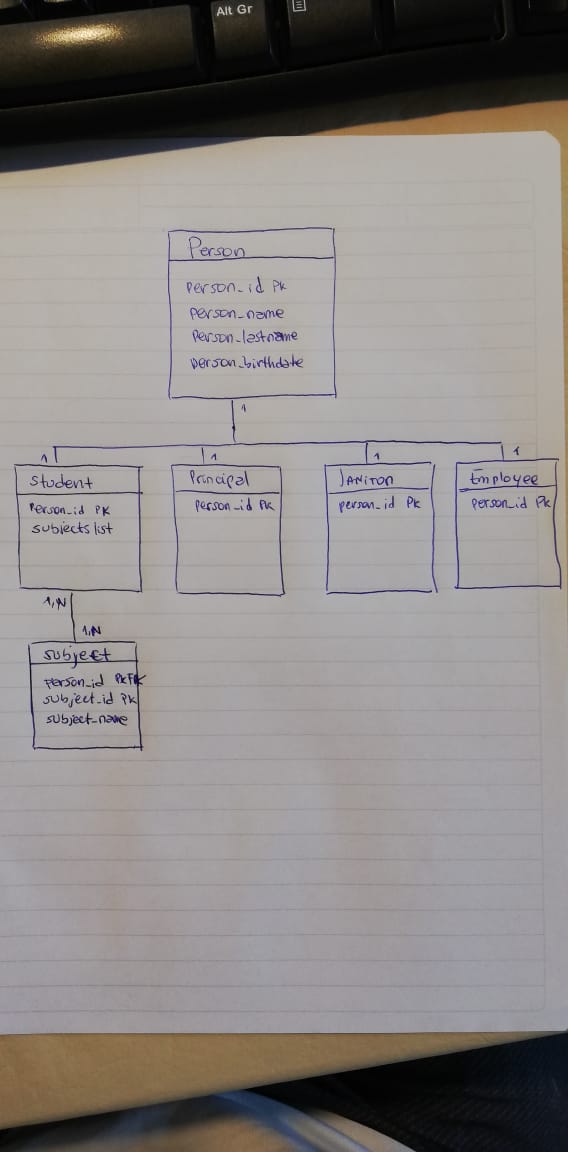 Alt Gr
Person
person_id Pk
person_name
Person_lastname
person_birthdate
1
1
1
1
1
Student
Person_id PK
subjects list
Principal
Person_id Pk
JANITOR
person_id PK
Employee
person_id Pk
1,N
1,N
subject
person_id PK FK
subject_id PK
subject_name